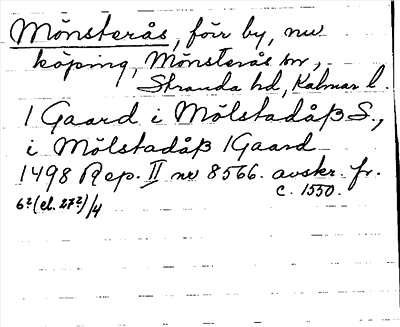 Mönsterås, förr by, nu
köping, Mönsterås sn,
Stranda hd, Kalmar l.
1 Gaard i Mölstadåß S.,
i Mölstadåß 1 Gaard
1498 Rep. II nr 8566. avskr. fr.
c. 1550.
6² (el. 27²)/4